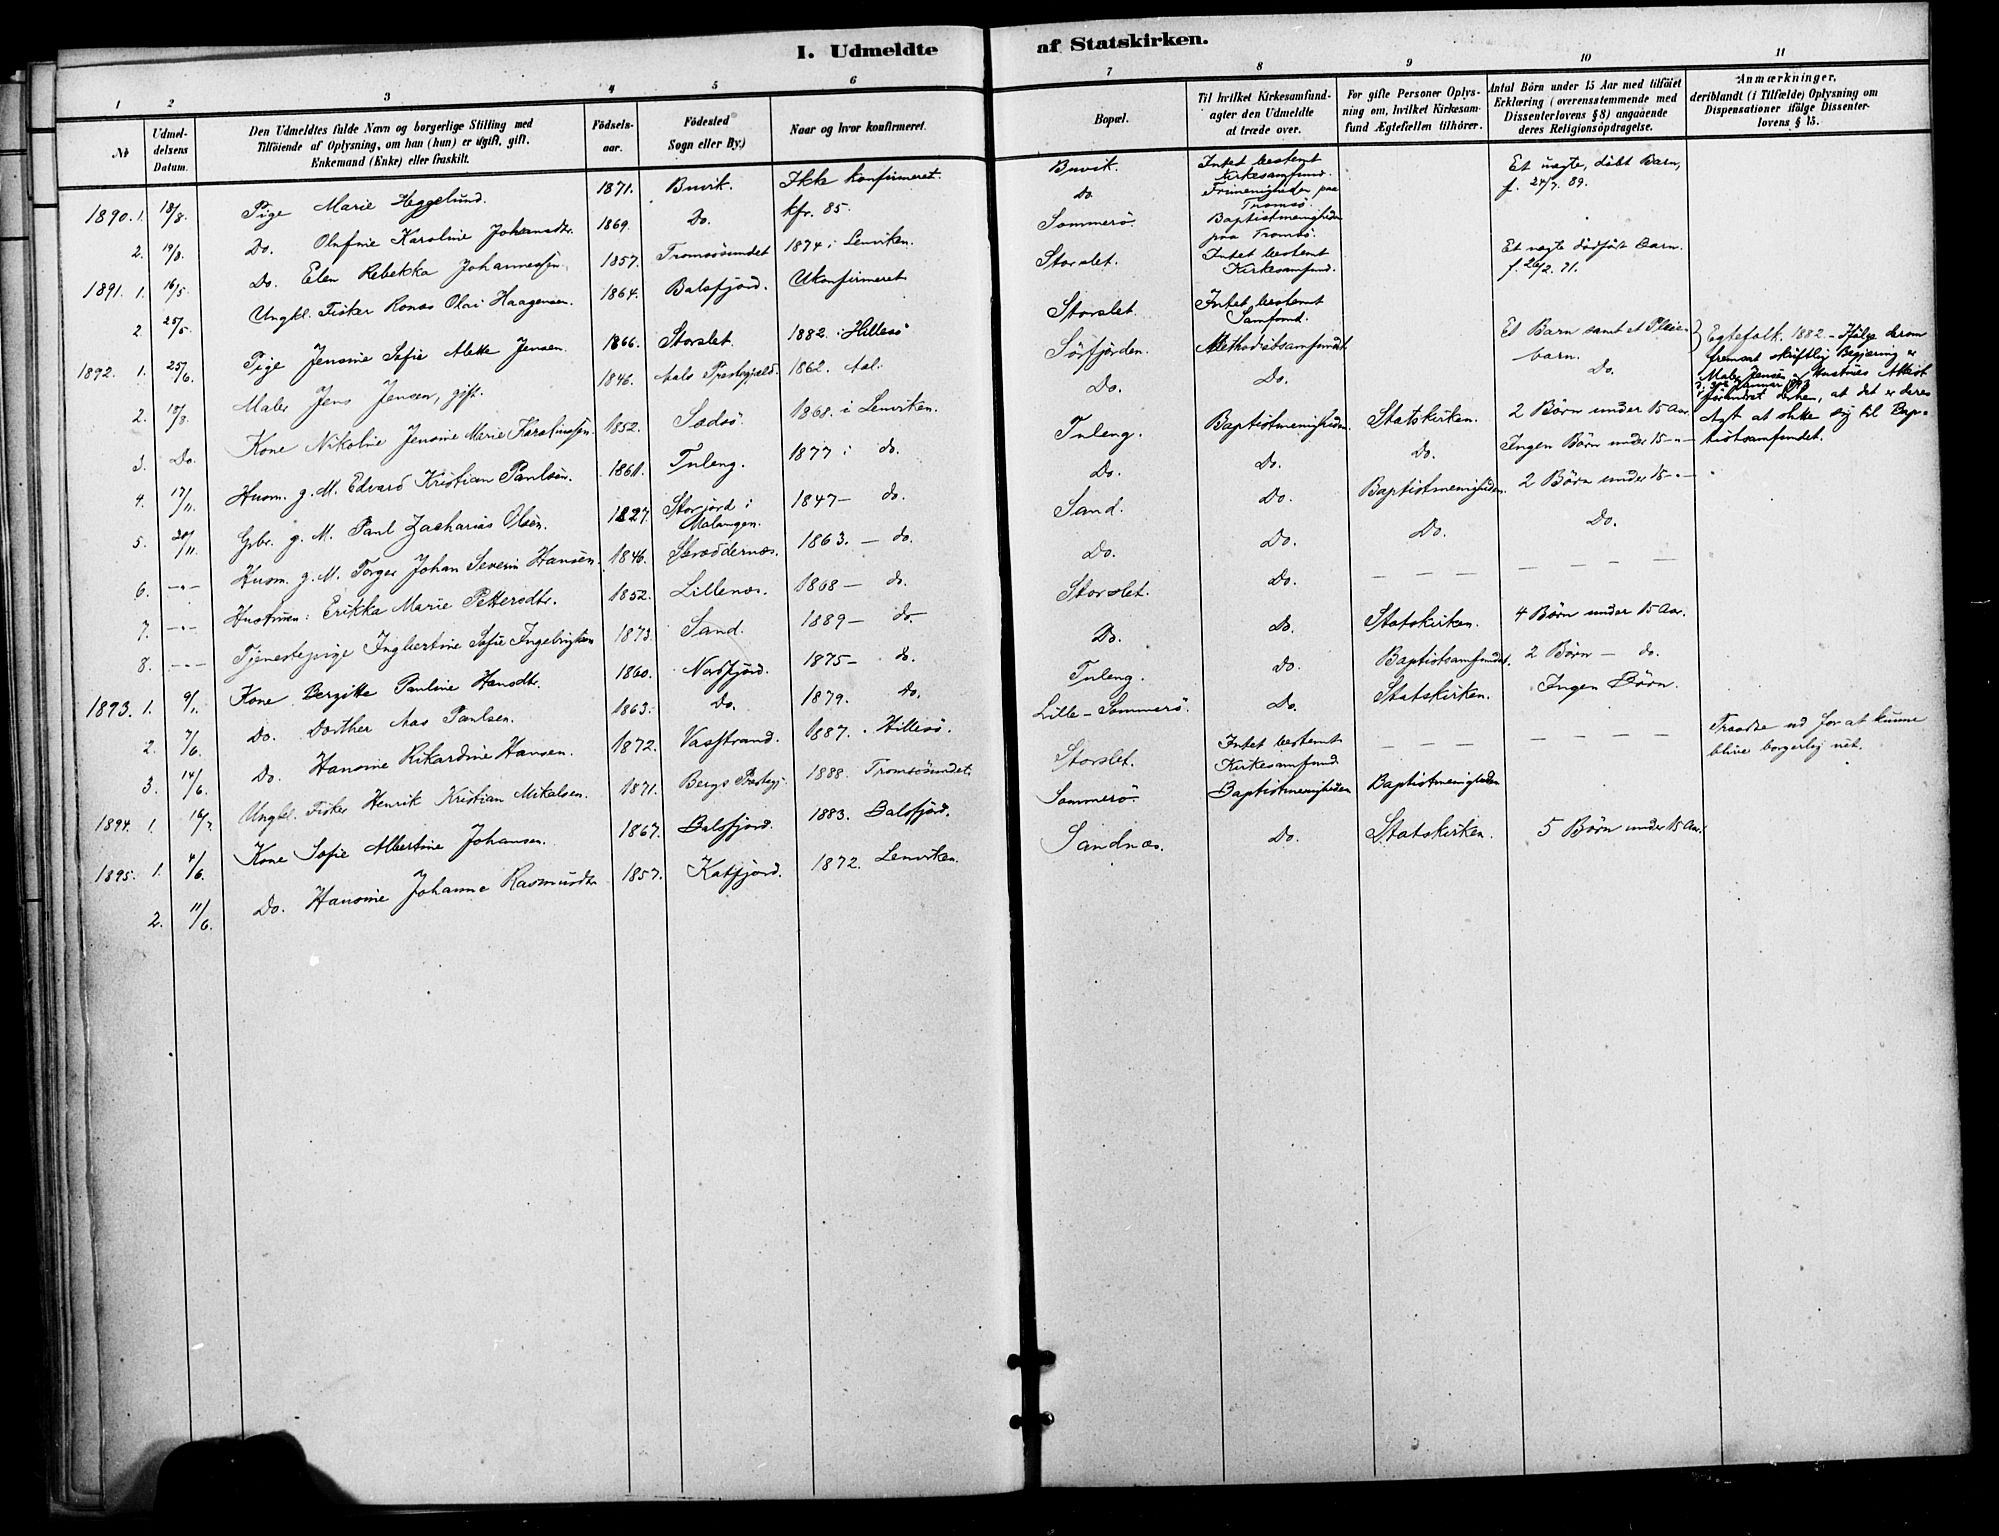 I. Udmeldte af Statskirken.
1 2 3 4 5 6 7 8 9 10 11
№ Udmeldelsens Datum. Den Udmeldtes fulde Navn og borgerlige Stilling med Tilföiende af Oplysning, om han (hun) er ugift, gift, Enkemand (Enke) eller fraskilt. Födselsaar. Födested Sogn eller By.) Naar og hvor konfirmeret. Bopæl. Til hvilket Kirkesamfund agter den Udmeldte at træde over. For gifte Personer Oplysning om, hvilket Kirkesamfund Ægtefællen tilhörer. Antal Börn under 15 Aar med tilföiet Erklæring (overensstemmende med Dissenterlovens § 8) angaaende deres Religionsopdragelse. Anmærkninger, deriblandt (i Tilfælde) Oplysning om Dispensationer ifölge Dissenterlovens § 15.
1890. 1. 18/8. Pige Marie Heggelund. 1871. Buvik. Ikke konfirmeret. Buvik. Intet bestemt Kirkesamfund. Et uægte, döbt Barn, f. 24/7. 89.
2. 19/8. Do. Olufine Karoline Johansdtr. 1869. Do. kfr. 85. Do. Frimenigheden paa Tromsö.
1891. 1. 16/5. Do. Elen Rebekka Johannessen. 1857. Tromsösundet 1874 i Lenviken. Sommerö. Baptistmenigheden paa Tromsö.
2. 25/5. Ungkl. Fisker Ronas Olai Haagensen. 1864. Balsfjord. Ukonfirmeret Storslet. Intet bestemt Kirkesamfund. Et uægte dödföst Barn. f. 26/2. 91.
1892. 1. 25/6. Pige Jensine Sofie Alette Jensen. 1866. Storslet. 1882 i Hillesö Storslet. Intet bestemt Samfund.
2. 18/8. Maler Jens Jensen, gift. 1846. Aals Præstegjæld. 1862. Aal. Sörfjorden. Methodistsamfundet. Et Barn samt et Pleiebarn. Egtefolk. 1882. - Ifölge derom fremsat skriftlig Begjæring er Maler Jensen og Hustrues Attest 30te Januar 1893 forandret derhen, at det er deres Agt at slutte sig til Baptistsamfundet.
3. Do. Kone Nikoline Jensine Marie 1852. 1868. i Lenviken. Do. Do. Do.
4. 17/11. Husm. g. M. Edvard Kristian Paulsen. 1861. Tuleng. 1877 i do. Tuleng. Baptistmenigheden. Statskirken. 2 Börn under 15 Aar.
5. 20/11. Gbr. g. M. Paul Zacharias Olsen. 1827. Storjord i Malangen. 1847 - do. Do. Do. Do. Ingen Börn under 15 - " -
6. - " - Husm. g. M. Torger Johan Severin Hansen. 1846. 1863. - do. Sand. Do. Baptistmenigheden. 2 Börn under 15 - " -
7. - " - Hustruen: Erikka Marie Pettersdtr. 1852. Lillenæs. 1868 - do. Do. Do. Do. Do.
8. - " - Tjenestepige Ingbertine Sofie Ingebrigtsen 1873. Sand. 1889 - do. Storslet. Do. - - - - - - - -
1893. 1. 9/1. Kone Bergitte Pauline Hansdtr. 1860. Nordfjord. 1875 - do. Do. Do. Statskirken. 4 Börn under 15 Aar.
2. 7/6. Do. Dorther Aas Paulsen. 1863. Do. 1879. Do. Tuleng. Do. Baptistsamfundet. 2 Börn - do.
3. 14/6. Do. Hansine Rikardine Hansen. 1872. Vasstrand. 1887. Hillesö. Lille-Sommerö. Do. Statskirken. Ingen Börn.
1894. 1. 16/7. Ungkl. Fisker Henrik Kristian Mikalsen. 1871. Bergs Præstegj. 1888. Tromsösundet. Storslet. Intet bestemt Kirkesamfund - - - - - - - Traadte ud for at kunne blive borgerlig viet.
1895. 1. 4/6. Kone Sofie Albertine Johansen. 1867. Balsfjord. 1883. Balsfjord. Sommerö. Baptistmenigheden Baptistmenigheden
2. 11/6. Do. Hansine Johanne Rasmusdtr. 1857. Katfjord. 1872. Lenviken. Sandnæs. Do. Statskirken. 5 Börn under 15 Aar.